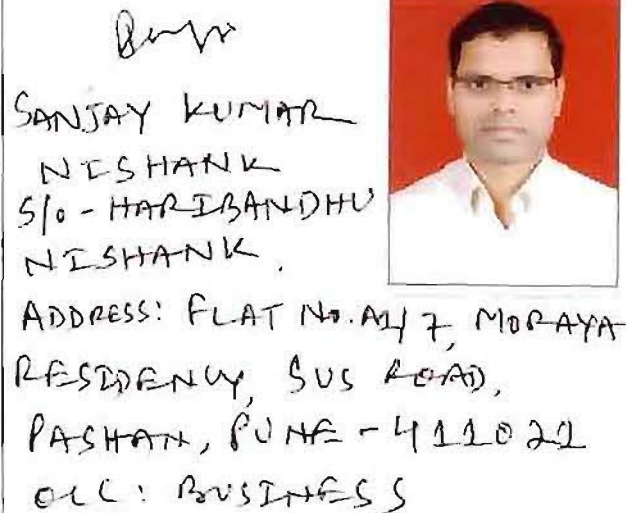 SANJAY KUMAR
NISHANK
S/o - HARIBANDHU
NISHANK.
ADDRESS: FLAT No. A1/7, MORAYA
RESIDENCY, SUS ROAD,
PASHAN, PUNE - 411021
OCC: BUSINESS